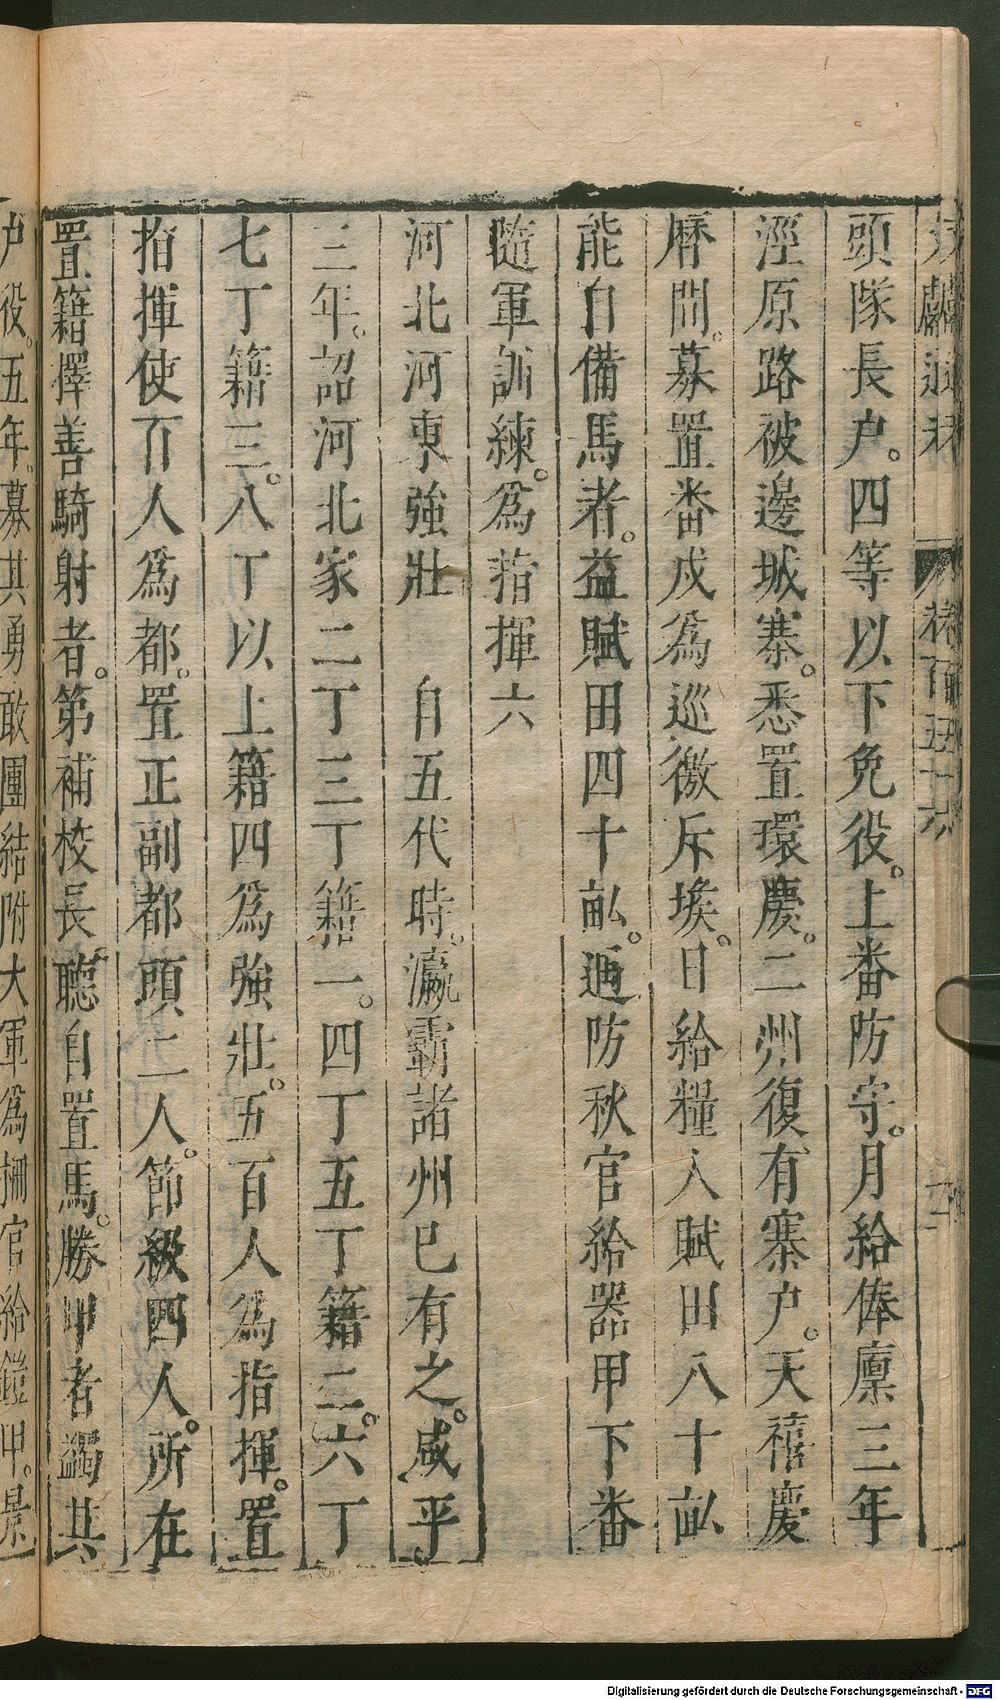 文獻通考 卷百五十六
頭隊長户。四等以下免役。上番防守。月給俸廪三年
涇原路被邊城寨。悉置環慶。二州復有寨户。天禧慶
曆間。募置畨戍爲巡徼斥堠。日給糧入賦田八十畆
能自備馬者。益賦田四十畆。遇防秋官給器甲下畨
隨軍訓練。爲指揮六
河北河東強壯 自五代時。瀛霸諸州巳有之。咸平
三年。詔河北家二丁三丁籍一。四丁五丁籍二。六丁
七丁籍三。八丁以上籍四爲強壯。五百人爲指揮。置
指揮使百人爲都。置正副都頭二人。節級四人。所在
置籍擇善騎射者。第補校長聽自置馬。勝甲者蠲其
户役。五年。募其勇敢團結附大軍爲柵官給鎧甲。景
Digitalisierung gefördert durch die Deutsche Forschungsgemeinschaft - DFG